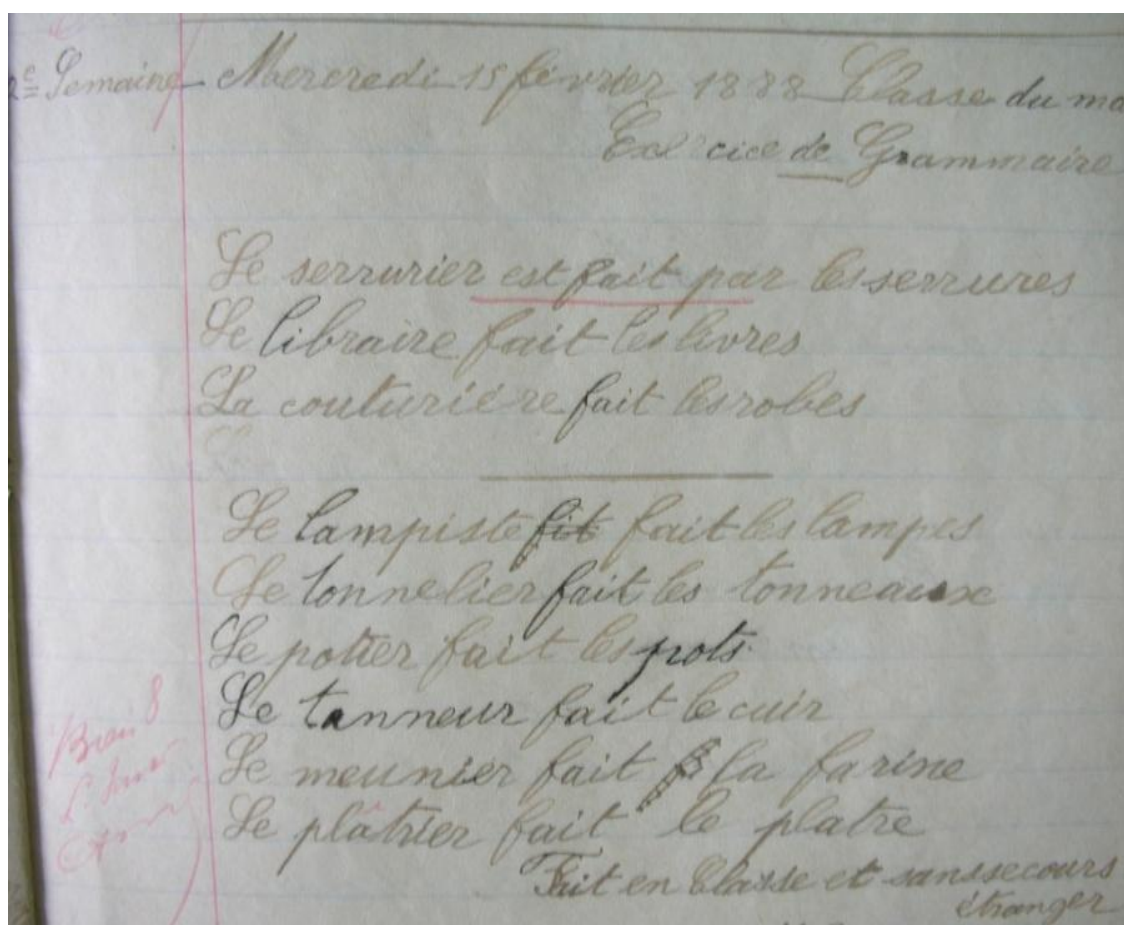 2e Semaine Mercredi 15 février 1888 Classe du ma
Exercice de Grammaire
Le serrurier est fait par les serrures
Le libraire fait les livres
La couturière fait les robes
Le lampiste fit fait les lampes
Le tonnelier fait les tonneaux
Le potier fait les pots
Le tanneur fait le cuir
Le meunier fait la farine
Le plâtrier fait le platre
Fait en Classe et sans secours
étranger
Bien 8